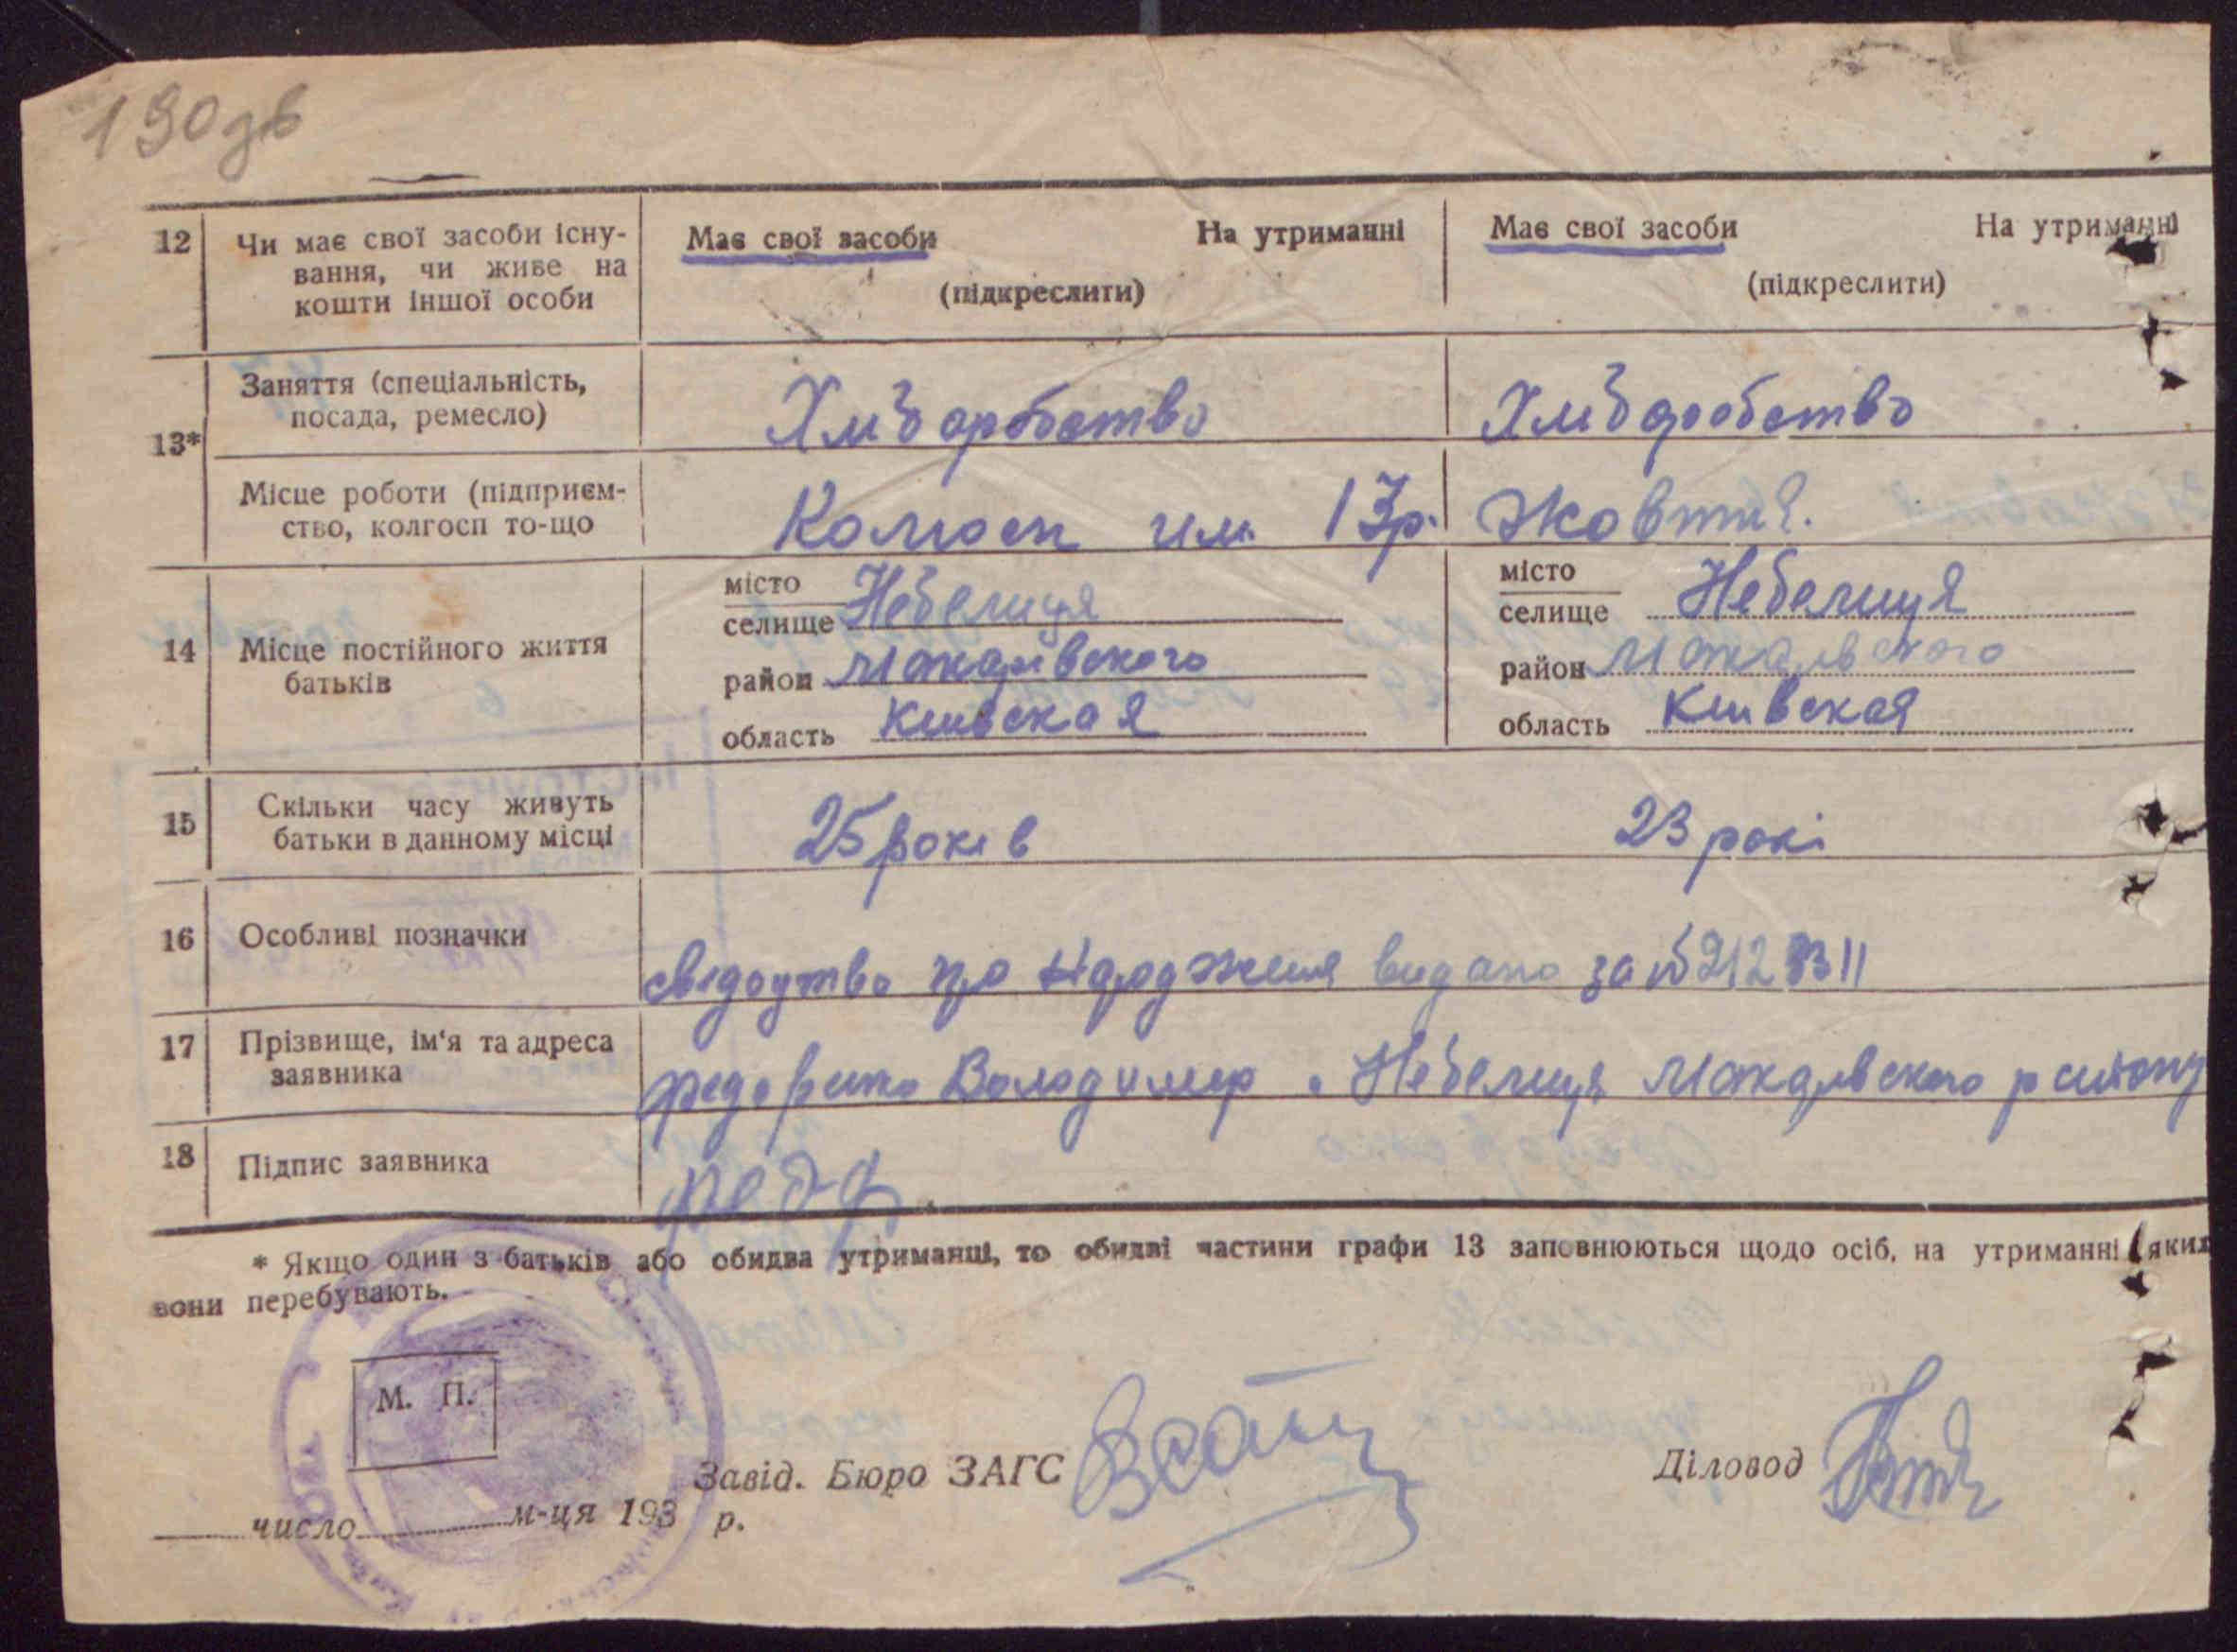 190 зв
12 Чи має свої засоби існу-
вання, чи живе на
кошти іншої особи
Має свої засоби На утриманні
(підкреслити)
Має свої засоби На утриманні
(підкреслити)
13*
Заняття (спеціальність,
посада, ремесло)
Хліборобство Хліборобство
Місце роботи (підприєм-
ство, колгосп то-що
Колгосп им. 13р. Жовтня.
14 Місце постійного життя
батьків
місто
селище Небелиця
район Макарівского
область Киівская
місто
селище Небелиця
район Макарівского
область Киівская
15 Скільки часу живуть
батьки в данному місці
25 років 23 рокі
16 Особливі позначки
свідоцтво про видано за №
17 Прізвище, ім'я та адреса
заявника
Володимир Небелиця Макарівского району
18 Підпис заявника
* Якщо один з батьків або обидва утриманці, то обидві частини графи 13 заповнюються щодо осіб, на утриманні яких
вони перебувають.
М. П.
Завід. Бюро ЗАГС
Діловод
число м-ця 193 р.